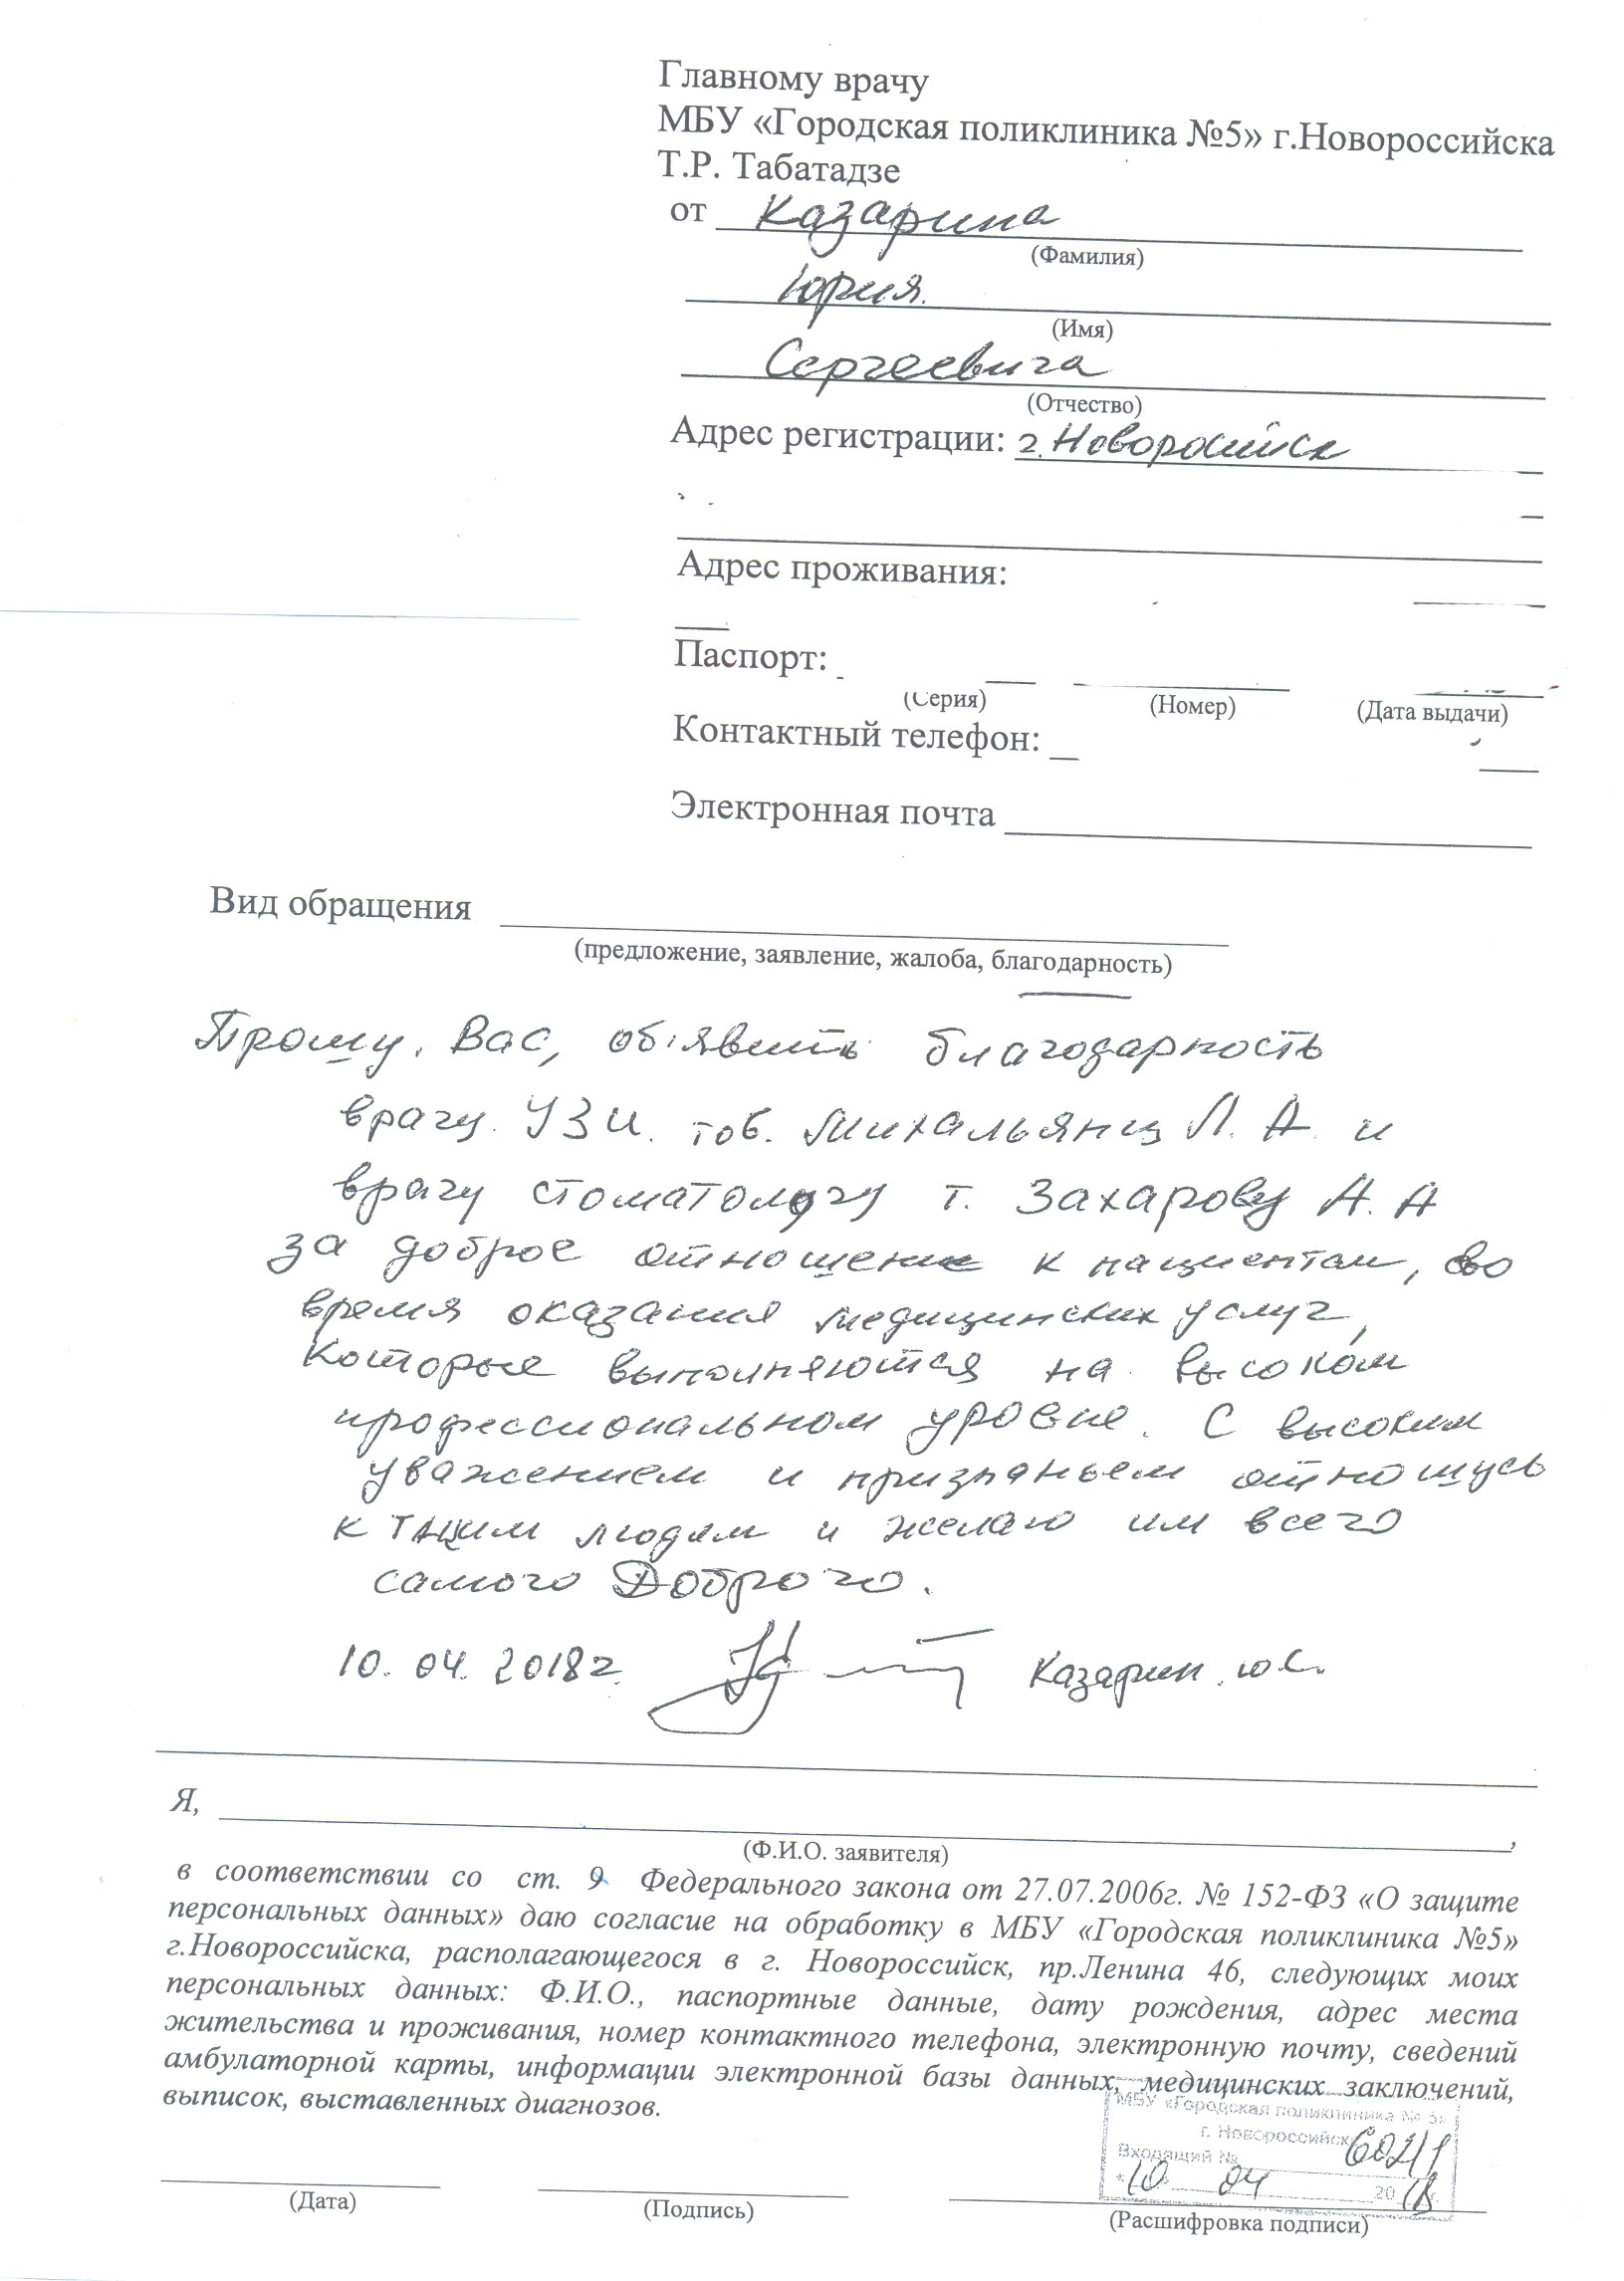 Главному врачу
МБУ «Городская поликлиника №5» г.Новороссийска
Т.Р. Табатадзе
от Казарина
(Фамилия)
Юрия.
(Имя)
Сергеевича
(Отчество)
Адрес регистрации: г. Новоросийск
Адрес проживания:
Паспорт:
(Серия) (Номер) (Дата выдачи)
Контактный телефон:
Электронная почта
Вид обращения
(предложение, заявление, жалоба, благодарность)
Прошу, Вас, объявить благодарность
врачу. УЗИ. тов. Михальянц Л. А. и
врачу стоматологу т. Захарову А. А
за доброе отношение к пациентам, во
время оказания медицинских услуг,
Которые выполняются на высоком
профессиональном уровне. С высоким
уважением и признаньем отношусь
к таким людям и желаю им всего
самого Доброго.
10. 04. 2018г. Казарин. Ю.С.
Я, ,
(Ф.И.О. заявителя)
в соответствии со ст. 9 Федерального закона от 27.07.2006г. № 152-ФЗ «О защите
персональных данных» даю согласие на обработку в МБУ «Городская поликлиника №5»
г.Новороссийска, располагающегося в г. Новороссийск, пр.Ленина 46, следующих моих
персональных данных: Ф.И.О., паспортные данные, дату рождения, адрес места
жительства и проживания, номер контактного телефона, электронную почту, сведений
амбулаторной карты, информации электронной базы данных, медицинских заключений,
выписок, выставленных диагнозов.
МБУ «Городская поликлиника № 5»
г. Новороссийск
Входящий №
«10 04 2018
(Дата) (Подпись) (Расшифровка подписи)